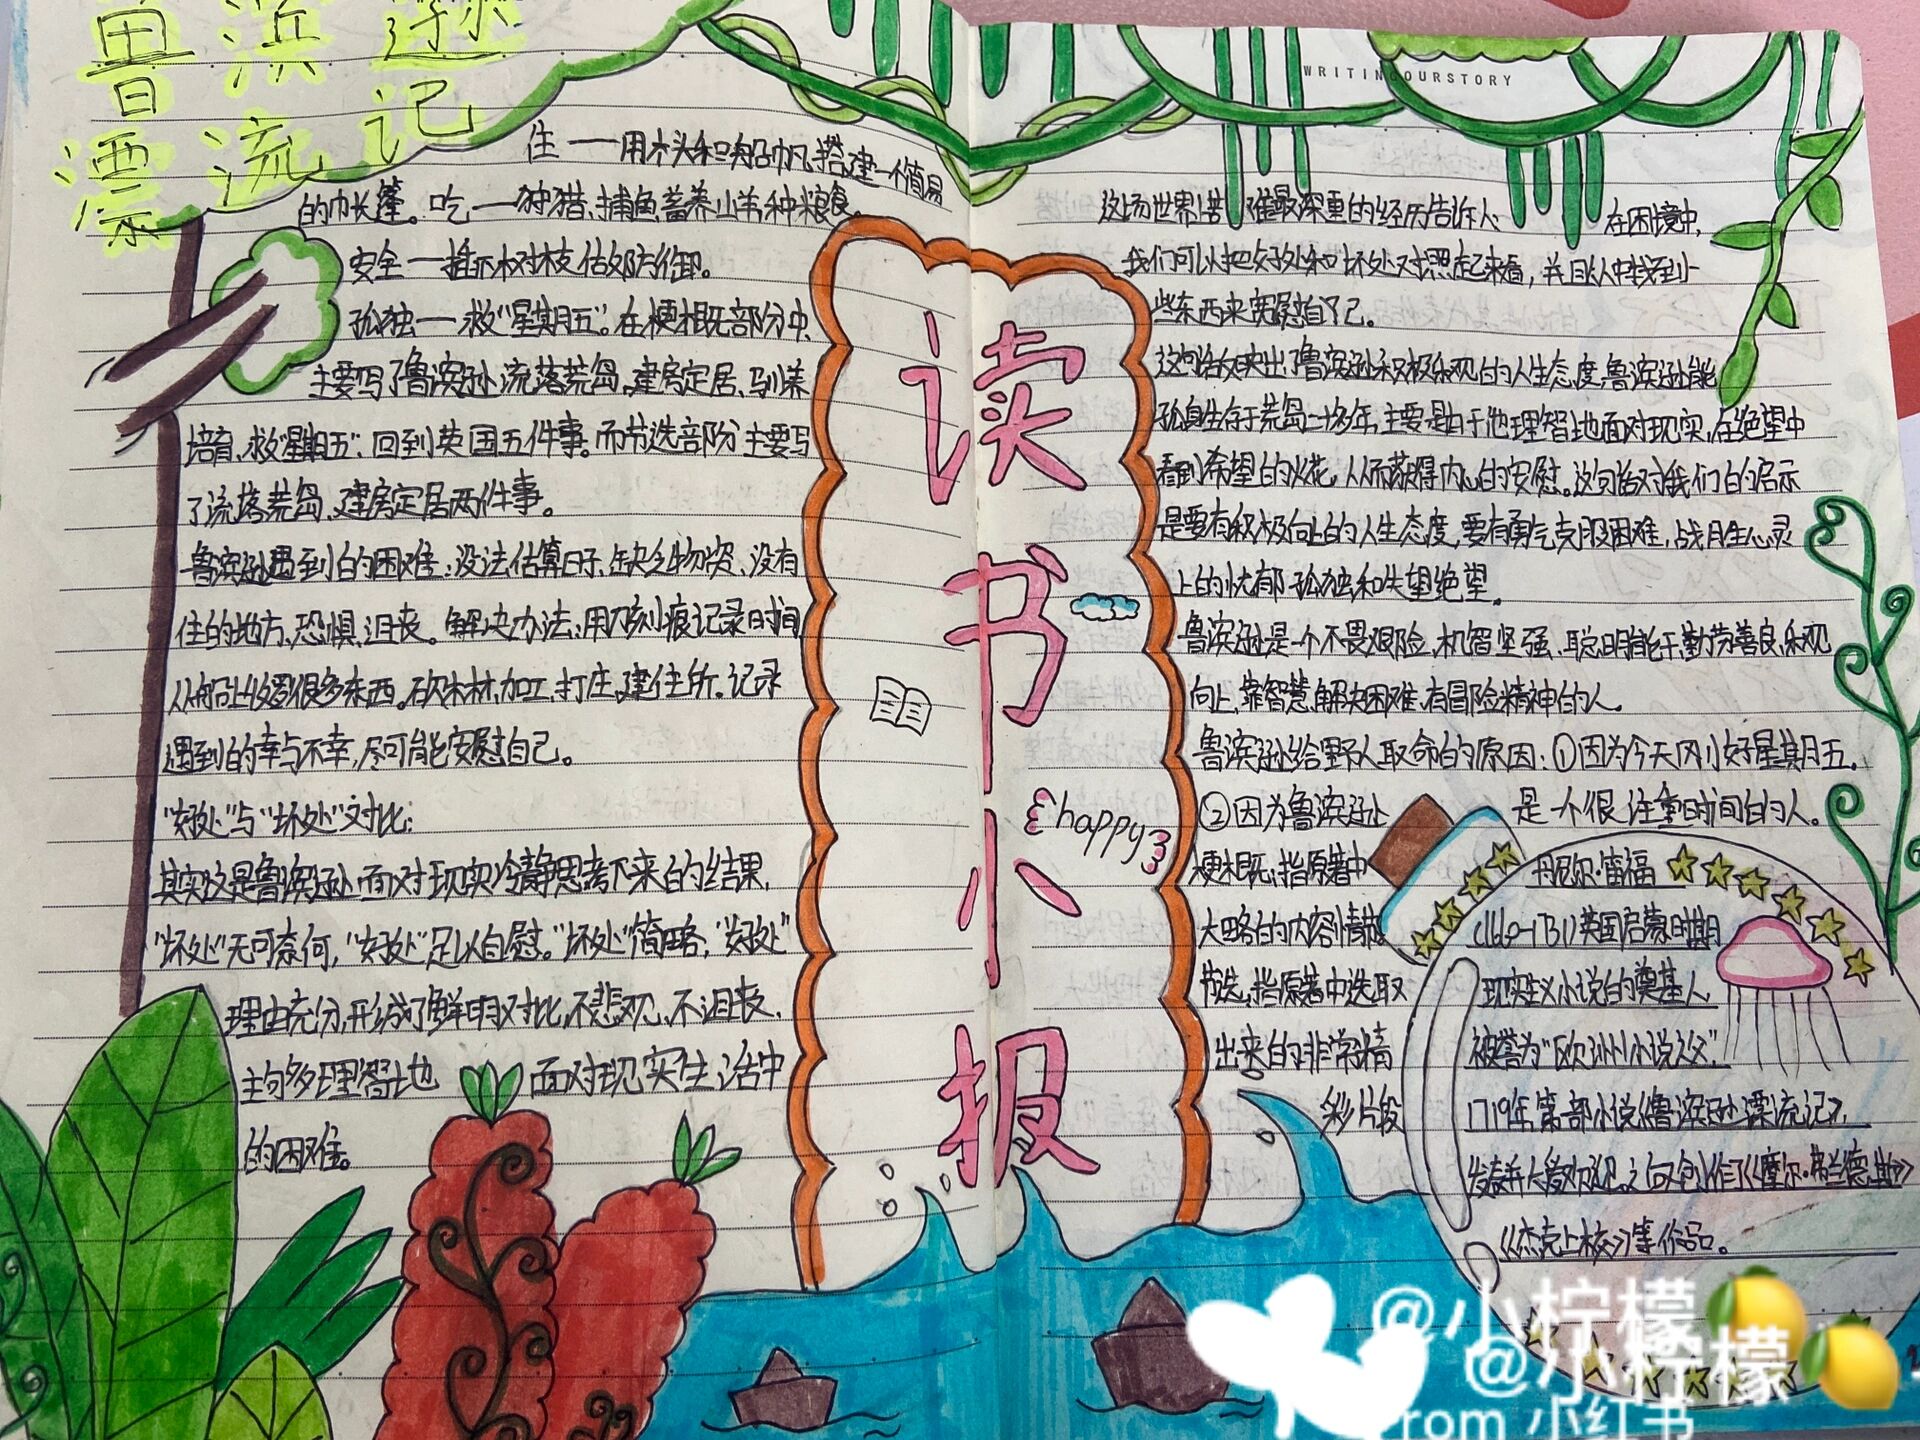 鲁滨逊
漂流记
住——用木头和船帆搭建一个简易
的帐篷。吃——狩猎、捕鱼、蓄养山羊,种粮食。
安全——插下树枝做防御。
孤独——救“星期五”。在梗概部分中,
主要写了鲁滨逊流落荒岛,建房定居、驯养
培育、救“星期五”、回到英国五件事。而节选部分主要写
了流落荒岛、建房定居两件事。
鲁滨逊遇到的困难:没法估算日子、缺乏物资、没有
住的地方、恐惧、沮丧。解决办法:用刀刻痕记录时间,
从船上收罗很多东西。砍木材,加工,打庄,建住所。记录
遇到的幸与不幸,尽可能安慰自己。
“好处”与“坏处”对比:
其实这是鲁滨逊面对现实冷静思考下来的结果,
“坏处”无可奈何,“好处”足以自慰。“坏处”简略,“好处”
理由充分,形成了鲜明对比,不悲观、不沮丧,
面对现实生活中
的困难。
读书小报
happy
WRITINGOURSTORY
这场世界上苦难最深重的经历告诉人 在困境中,
我们可以把好处和坏处对照起来看,并且从中找到一
些东西来宽慰自己。
这句话反映出了鲁滨逊积极乐观的人生态度,鲁滨逊能
孤身生存于荒岛二十多年,主要是由于他理智地面对现实,在绝望中
看到希望的火花,从而获得内心的安慰。这句话对我们的启示
是要有积极向上的人生态度,要有勇气克服困难,战胜心灵
上的忧郁孤独和失望绝望。
鲁滨逊是一个不畏艰险、机智坚强、聪明能干、勤劳善良、乐观
向上,靠智慧解决困难,有冒险精神的人。
鲁滨逊给野人取命的原因:①因为今天刚好星期五。
②因为鲁滨逊 是一个很注重时间的人。
梗概:指原著中
大略的内容情
节选:指原著中选取
出来的非常精
彩片段
丹尼尔·笛福
英国启蒙时期
现实主义小说的奠基人,
被誉为“欧洲小说之父”,
1719年第一部小说《鲁滨逊漂流记》
发表并大受欢迎。之后又创作了《摩尔·弗兰德斯》
《杰克上校》等作品。
@小柠檬
@小柠檬
from 小红书